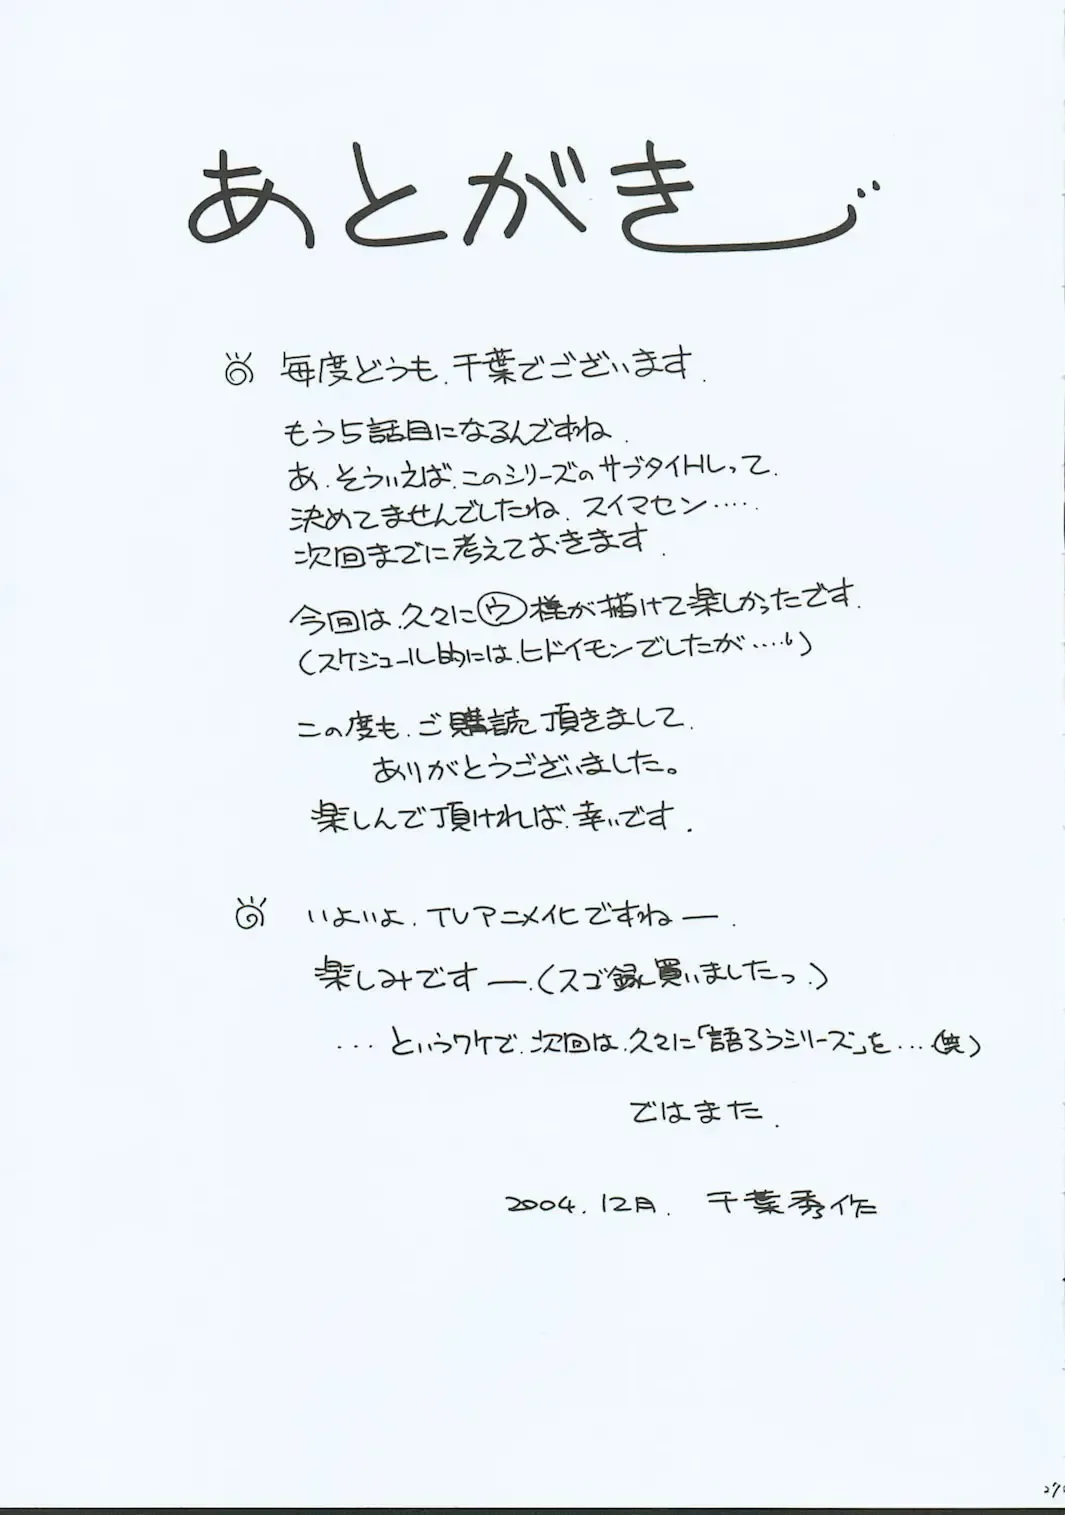 あとがき
毎度どうも、千葉でございます。
もう5話目になるんですね。
あ、そういえば、このシリーズのサブタイトルって、
決めてませんでしたね、スイマセン‥‥。
次回までに考えておきます。
今回は、久々に㋒様が描けて楽しかったです。
(スケジュール的には、ヒドイモンでしたが‥‥。)
この度も、ご購読頂きまして、
ありがとうございました。
楽しんで頂ければ、幸いです。
いよいよ、TVアニメ化ですねー。
楽しみですー。(スゴ録買いましたっ。)
‥‥というワケで、次回は、久々に「語ろうシリーズ」を‥‥(笑)
ではまた。
2004.12月. 千葉秀作